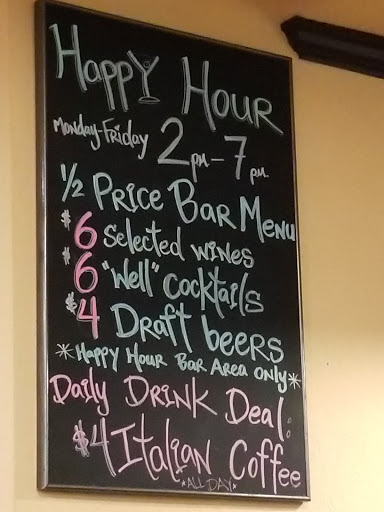 Happy Hour
Monday-Friday 2pm-7pm
1/2 Price Bar Menu
$6 Selected Wines
$6 "Well" Cocktails
$4 Draft beers
*Happy Hour Bar Area Only*
Daily Drink Deal:
$4 Italian Coffee
*ALL DAY*